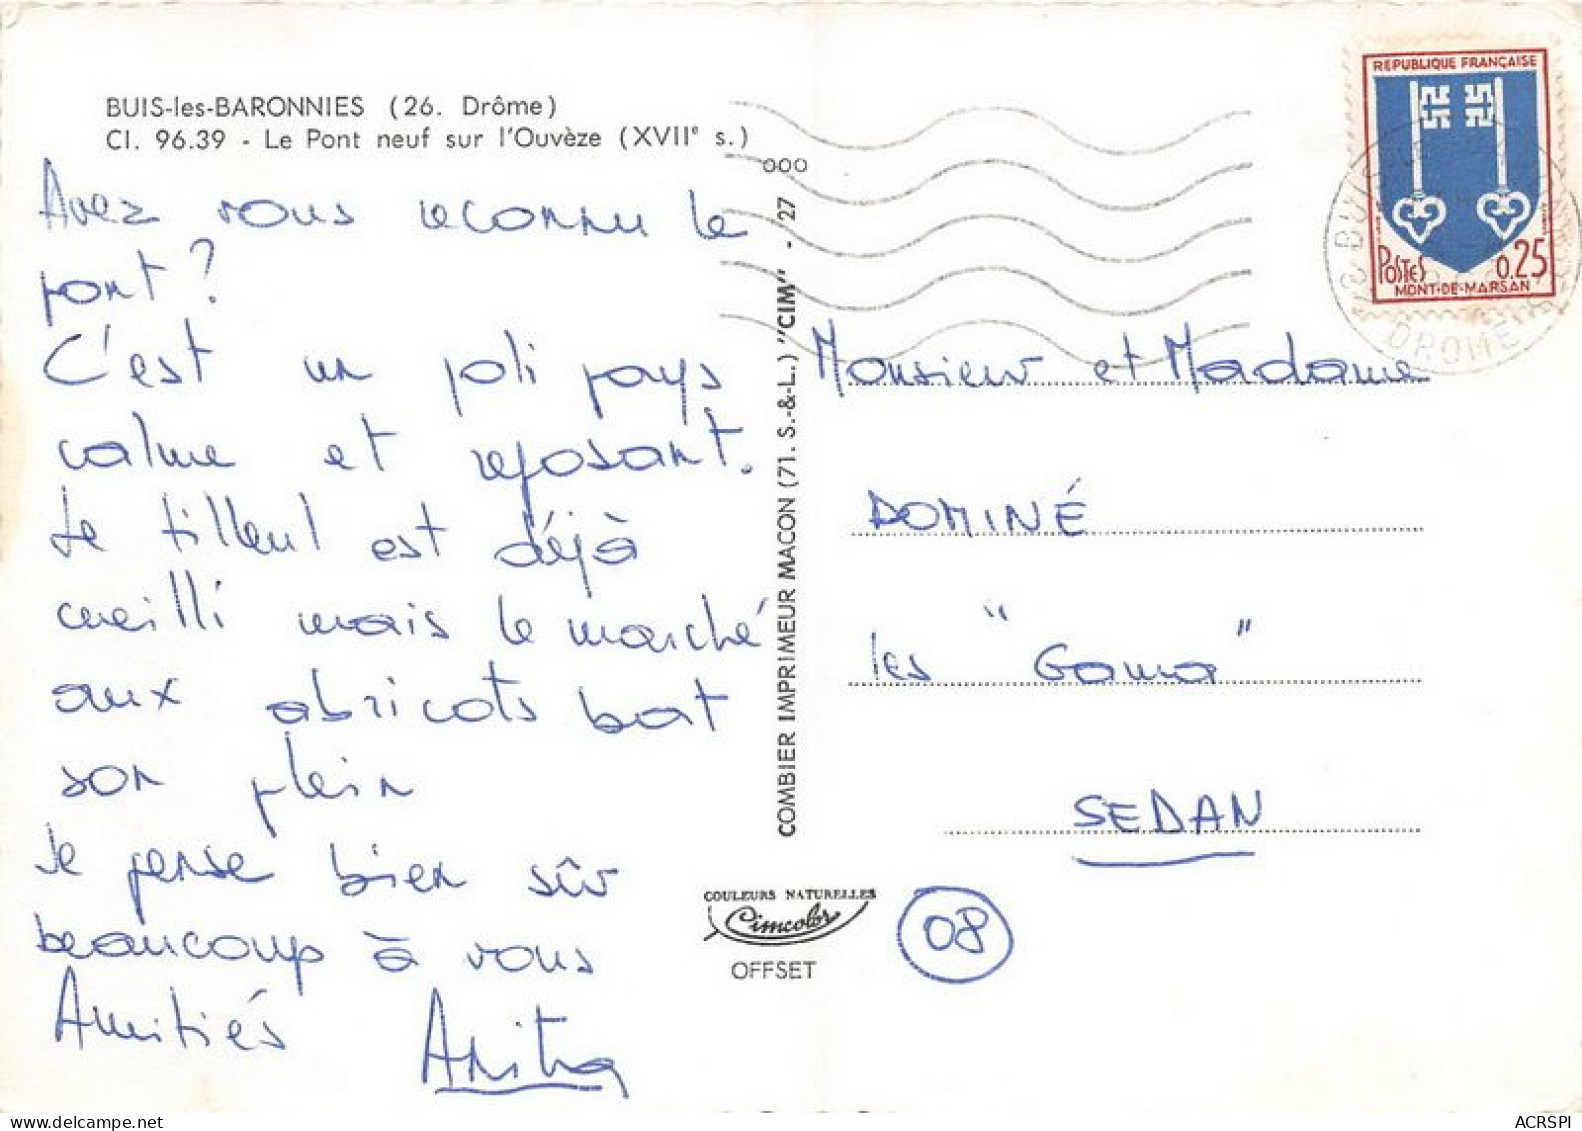 BUIS-les-BARONNIES (26. Drôme)
Cl. 96.39 - Le Pont neuf sur l'Ouvèze (XVIIe s.)
Avez vous reconnu le
pont ?
C'est un joli pays
calme et reposant.
Le tilleul est déjà
cueilli mais le marché
aux abricots bat
son plein
Je pense bien sûr
beaucoup à vous
Amitiés Anita
COMBIER IMPRIMEUR MACON (71. S.-&-L.) "CIM" - 27
ooo
COULEURS NATURELLES
Cimcolor
OFFSET
REPUBLIQUE FRANÇAISE
POSTES 0.25
MONT-DE-MARSAN
BUIS
DROME
Monsieur et Madame
DOMINÉ
les "Gama"
SEDAN
08
ACRSPI